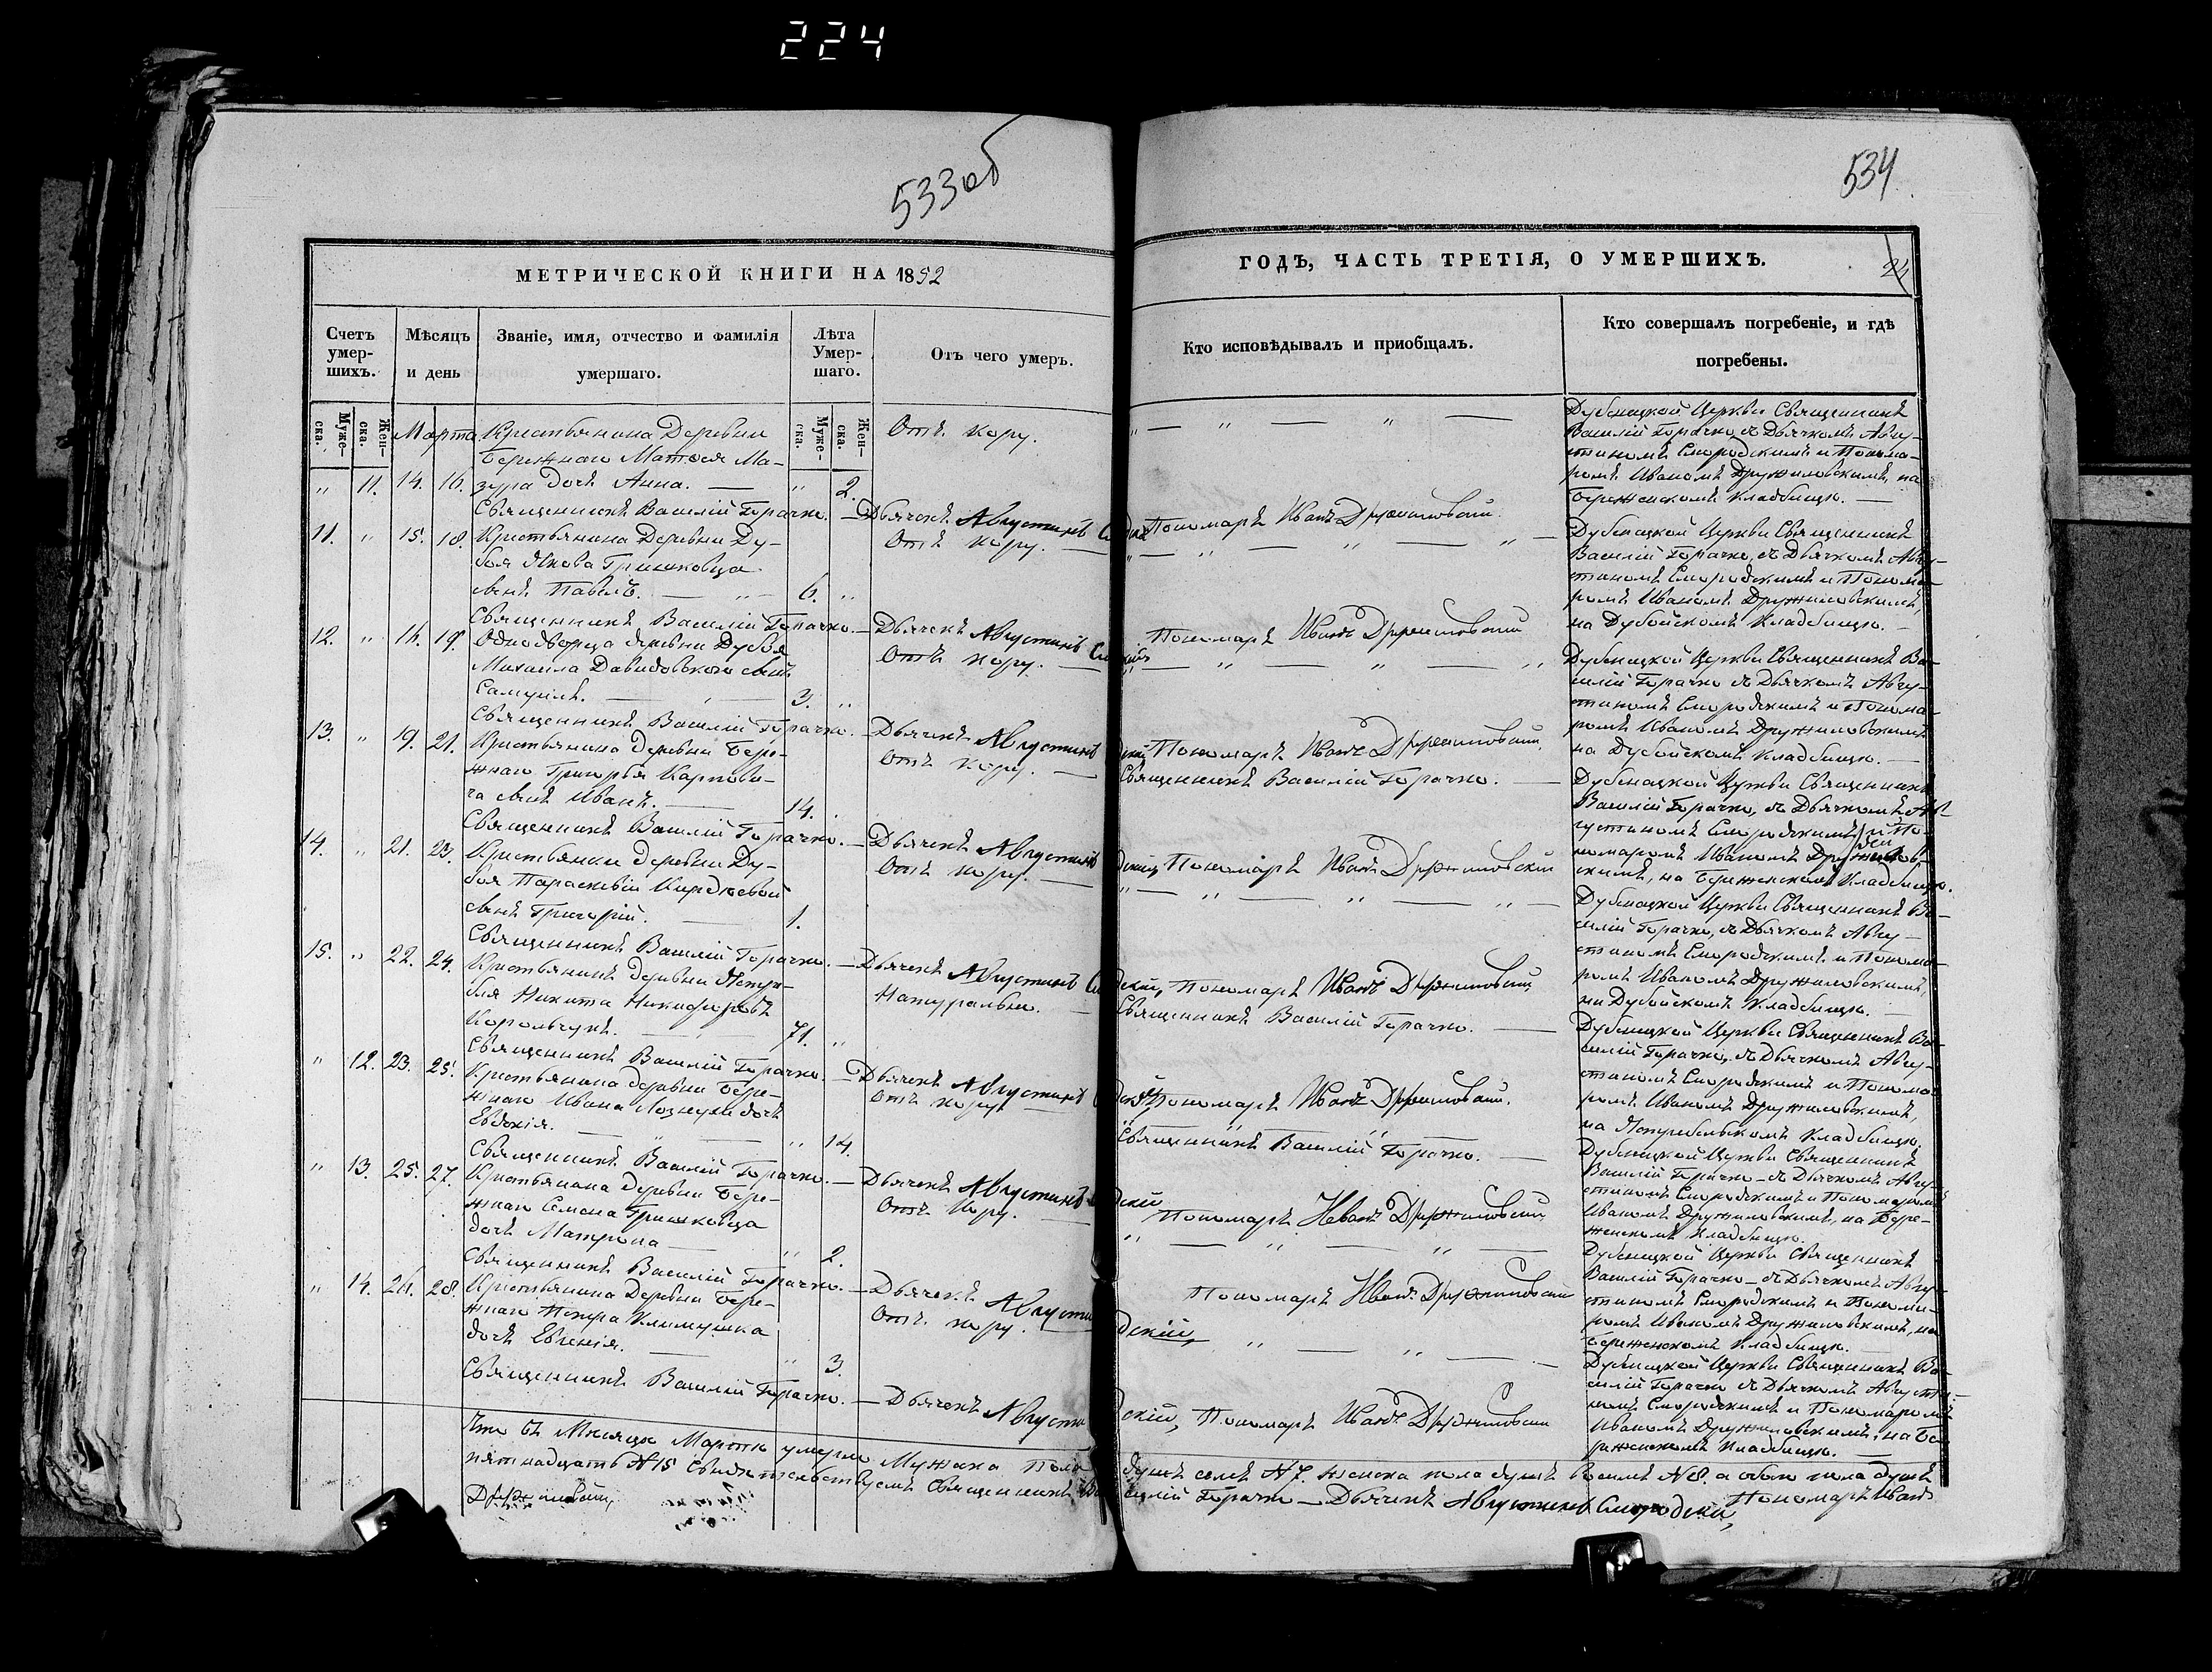 224
533об
534
24
МЕТРИЧЕСКОЙ КНИГИ НА 1852
ГОДЪ, ЧАСТЬ ТРЕТІЯ, О УМЕРШИХЪ.
Счетъ умер-шихъ.
Мѣсяцъ и день
Званіе, имя, отчество и фамилія умершаго.
Лѣта Умер-шаго.
Отъ чего умеръ.
Кто исповѣдывалъ и приобщалъ.
Кто совершалъ погребеніе, и гдѣ погребены.
Муже-ска.
Жен-ска.
Муже-ска.
Жен-ска.
Марта
Крестьянина Деревни
Бережнаго Матѳея Ма-
„ 11. 14. 16. зура дочь Анна. — „ 2.
Отъ кору.
„ — „ — „ —
Дубенецкой Церкви Священникъ
Василій Горачко, съ Дьячкомъ Авгу-
стиномъ Смородскимъ и Понома-
ремъ Иваномъ Дружиловскимъ, на
Бережскомъ Кладбищѣ. —
Священникъ Василій Горачко. — Дьячекъ Августинъ Пономарь Иванъ Дружиловскій.
11. „ 15. 18. Крестьянина Деревни Ду-
боя Якова Гришковца
сынъ Павелъ. — „ — 6. „
Отъ кору. —
„ — „ — „ — „ —
Дубенецкой Церкви Священникъ
Василій Горачко, съ Дьячкомъ Авгу-
стиномъ Смородскимъ и Понома-
ремъ Иваномъ Дружиловскимъ,
на Дубойскомъ Кладбищѣ. —
Священникъ Василій Горачко. — Дьячекъ Августинъ Пономарь Иванъ Дружиловскій
12. „ 16. 19. Однодворца деревни Дубоя
Михаила Давидовскаго сынъ
Самуилъ. — 3. „
Отъ кору. —
— „ — „ — „
Дубенецкой Церкви Священникъ Ва-
силій Горачко съ Дьячкомъ Авгу-
стиномъ Смородскимъ и Понома-
ремъ Иваномъ Дружиловскимъ
на Дубойскомъ Кладбищѣ. —
Священникъ Василій Горачко. — Дьячекъ Августинъ Пономарь Иванъ Дружиловскій.
13. „ 19. 21. Крестьянина деревни Бере-
жнаго Григорья Карпови-
ча сынъ Иванъ. — 14.
Отъ кору. —
Священникъ Василій Горачко. —
Дубенецкой Церкви Священникъ
Василій Горачко, съ Дьячкомъ Ав-
густиномъ Смородскимъ и По-
номаремъ Иваномъ Дружилов-
скимъ, на Бережскомъ Кладбищѣ.
Священникъ Василій Горачко. — Дьячекъ Августинъ Пономарь Иванъ Дружиловскій
14. „ 21. 23. Крестьянки деревни Ду-
боя Параскевіи
сынъ Григорій. — 1.
Отъ кору. —
„ — „ — „ — „ —
Дубенецкой Церкви Священникъ Ва-
силій Горачко, съ Дьячкомъ Авгу-
стиномъ Смородскимъ и Понома-
ремъ Иваномъ Дружиловскимъ,
на Дубойскомъ Кладбищѣ.
Священникъ Василій Горачко. — Дьячекъ Августинъ Пономарь Иванъ Дружиловскій
15. „ 22. 24. Крестьянинъ деревни
Никита Никифоровъ
Корольчукъ. — 71. „
Натурально. —
Священникъ Василій Горачко. —
Дубенецкой Церкви Священникъ Ва-
силій Горачко, съ Дьячкомъ Авгу-
стиномъ Смородскимъ и Понома-
ремъ Иваномъ Дружиловскимъ,
на Кладбищѣ.
Священникъ Василій Горачко. — Дьячекъ Августинъ Пономарь Иванъ Дружиловскій.
„ 12. 23. 25. Крестьянина деревни Бере-
жнаго Ивана дочь
Евдокія. — „ — „ 14.
Отъ кору —
Священникъ Василій Горачко. —
Дубенецкой Церкви Священникъ
Василій Горачко — съ Дьячкомъ Авгу-
стиномъ Смородскимъ и Пономаремъ
Иваномъ Дружиловскимъ, на Бере-
жскомъ Кладбищѣ.
Священникъ Василій Горачко. — Дьячекъ Августинъ Пономарь Иванъ Дружиловскій
„ 13. 25. 27. Крестьянина деревни Бере-
жнаго Семена Гришковца
дочь Матрона — „ 2.
Отъ кору. —
„ — „ — „ —
Дубенецкой Церкви Священникъ
Василій Горачко — съ Дьячкомъ Авгу-
стиномъ Смородскимъ и Понома-
ремъ Иваномъ Дружиловскимъ, на
Бережскомъ Кладбищѣ.
Священникъ Василій Горачко. — Дьячекъ Пономарь Иванъ Дружиловскій
„ 14. 26. 28. Крестьянина Деревни Бере-
жнаго Петра Климушка
дочь Евгенія. — „ 3.
Отъ кору. —
„ — „ — —
Дубенецкой Церкви Священникъ Ва-
силій Горачко съ Дьячкомъ Августи-
номъ Смородскимъ и Пономаремъ
Иваномъ Дружиловскимъ, на Бе-
режскомъ Кладбищѣ. —
Священникъ Василій Горачко. — Дьячекъ Пономарь Иванъ Дружиловскій
Что въ Мѣсяцѣ Мартѣ умерло Мужска Пола душъ семь №7. женска пола душъ восемь №8. а обоего пола душъ
пятнадцать №15 Свидѣтельствуемъ Священникъ Василій Горачко — Дьячекъ Августинъ Смородскій, Пономарь Иванъ
Дружиловскій